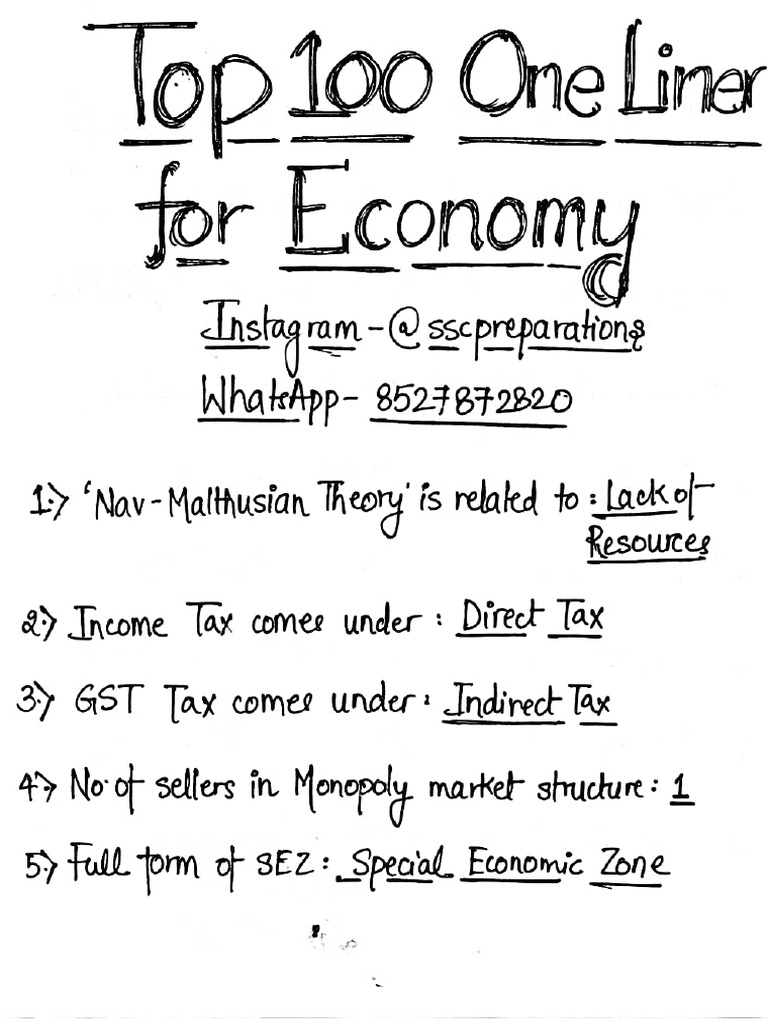 Top 100 One Liner
for Economy
Instagram - @sscpreparations
WhatsApp - 8527872820
1.> 'Nav-Malthusian Theory' is related to : Lack of
Resources
2.> Income Tax comes under : Direct Tax
3.> GST Tax comes under : Indirect Tax
4.> No. of sellers in Monopoly market structure : 1
5.> Full form of SEZ : Special Economic Zone